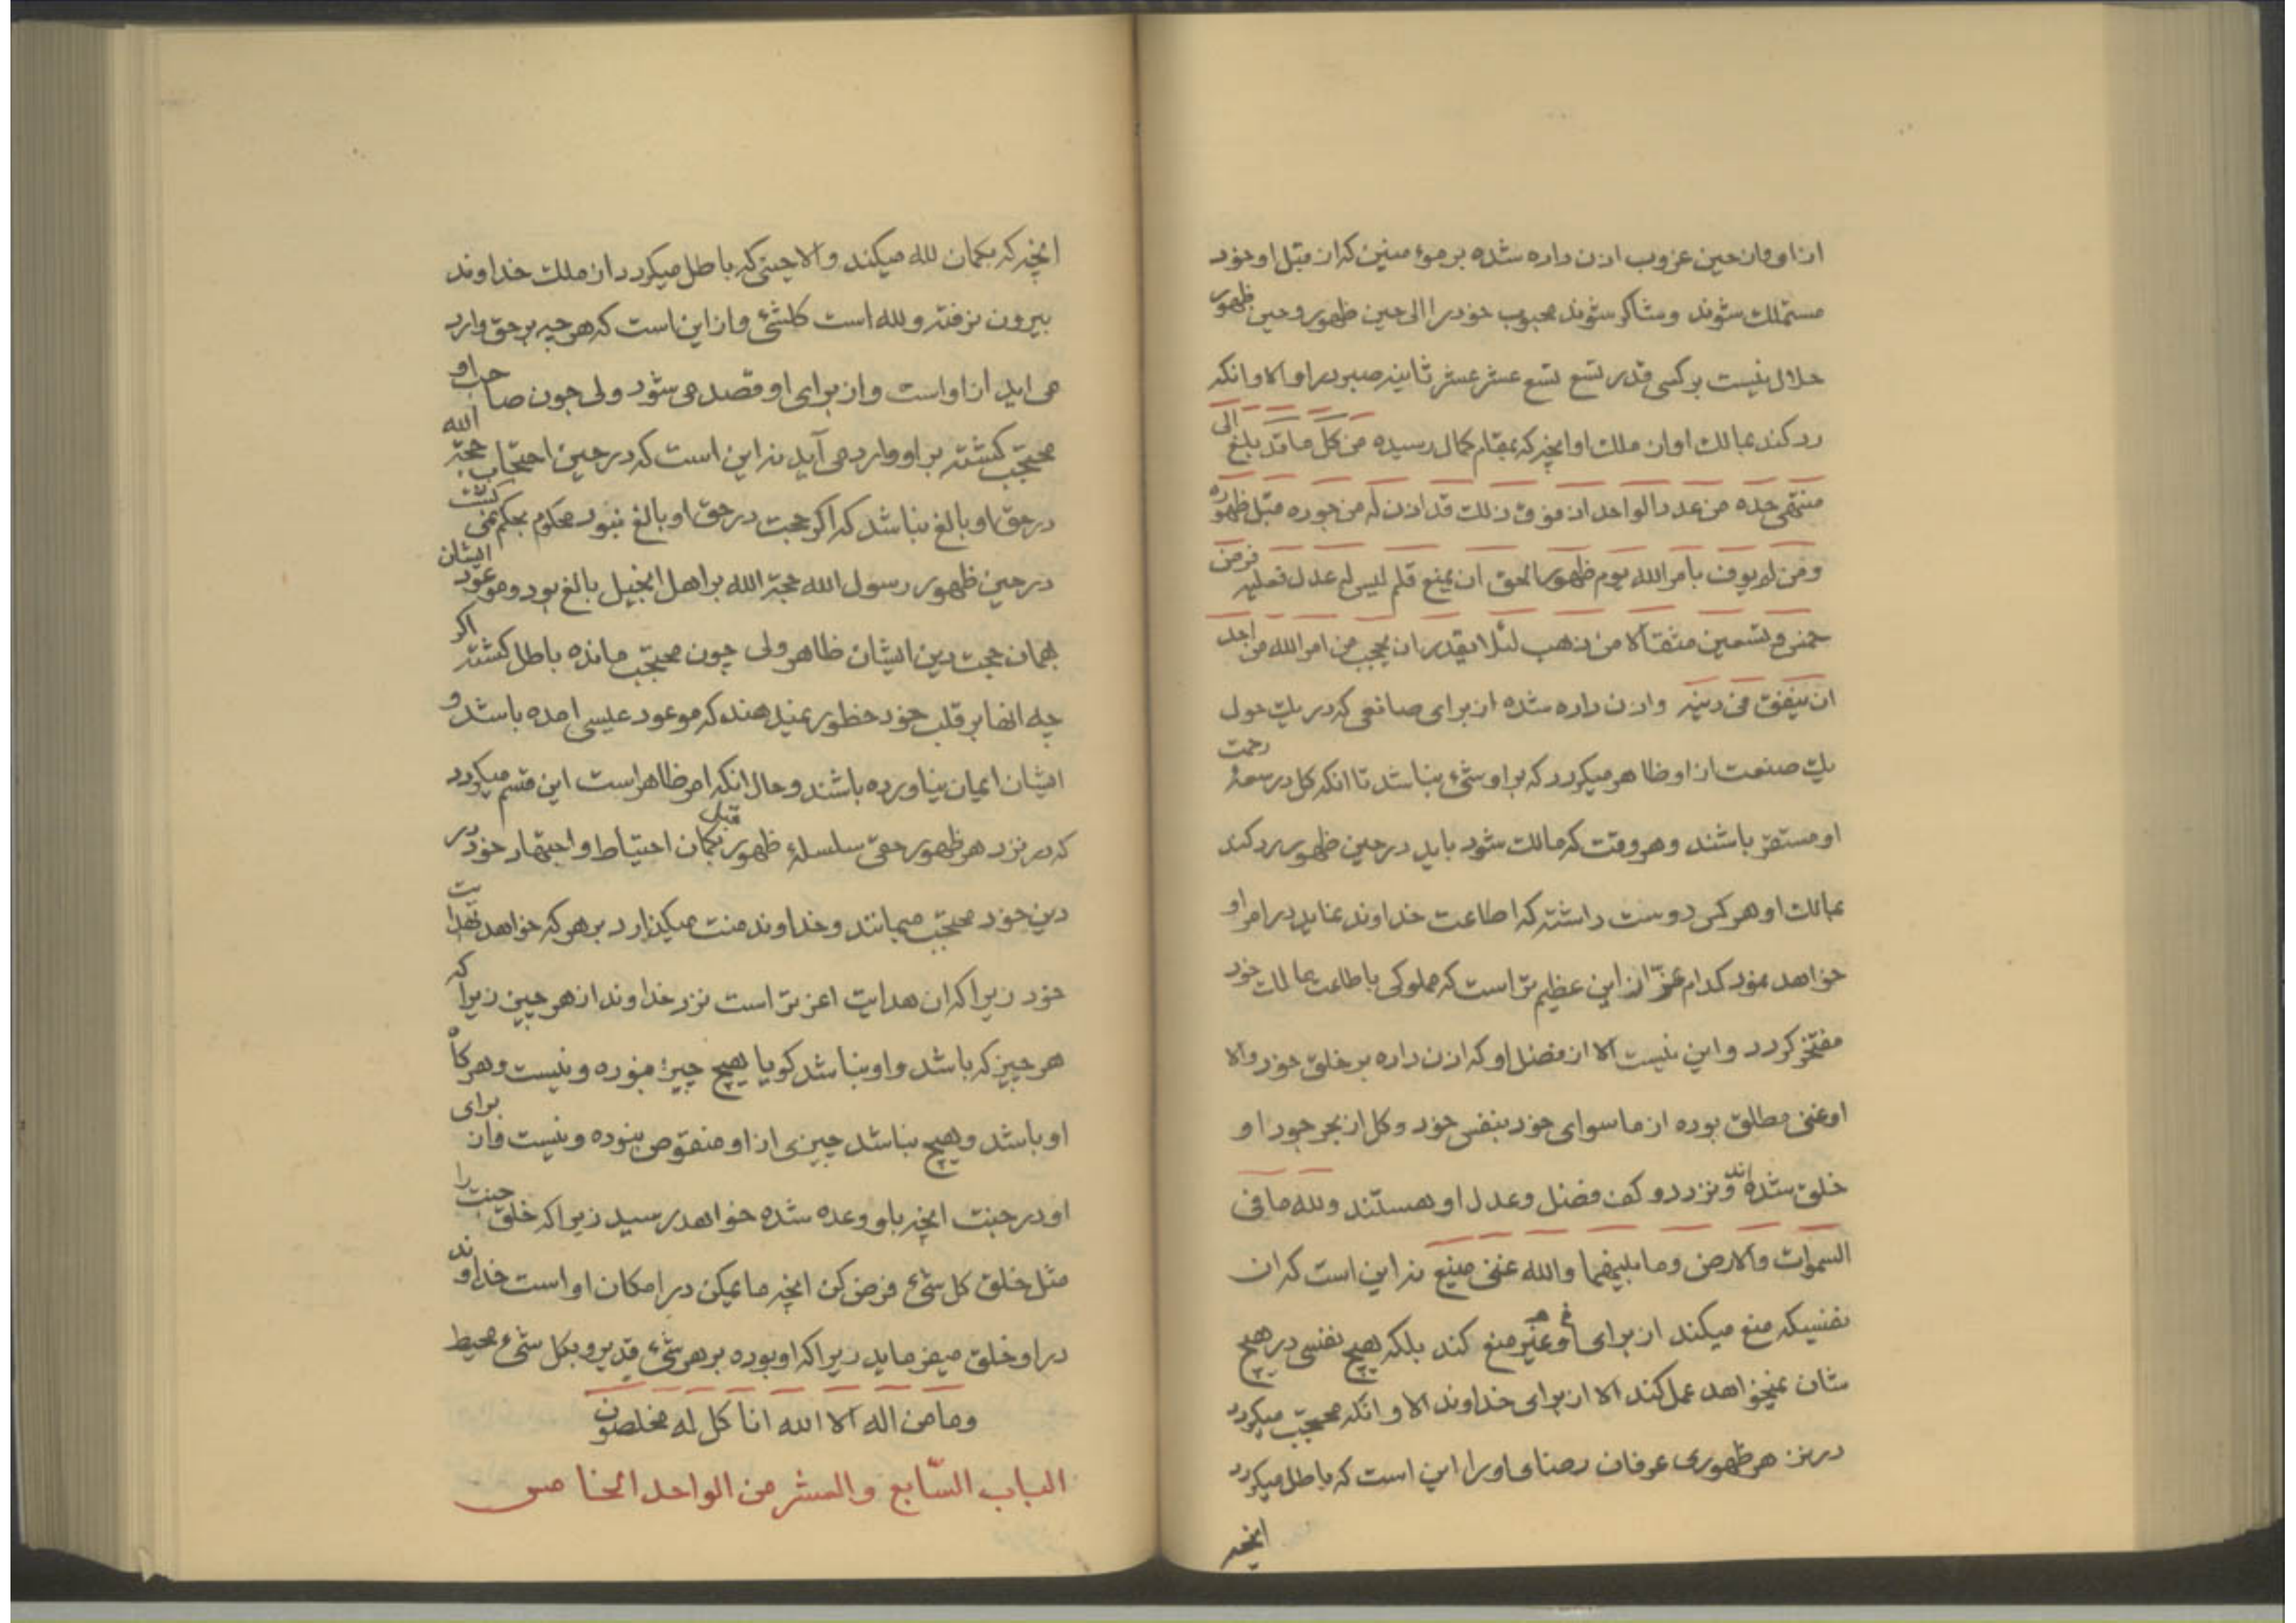 از او و از حین غروب اذن داده شده بر مؤمنین که از قبل او خود
مستملک شوند و شاکر شوند محبوب خود را الی حین ظهور و حین ظهور
حلال نیست بر کسی قدر تسع تسع عشر عشر ثانیه صبر در او الا و انکه
رد کند بمالک او ان ملک او انچه که بمقام کمال رسیده من کل ما قد بلغ الی
منتهی حده من عدد الواحد اذ فوق ذلک قد اذن له من جوده قبل ظهوره
و من لم یوف بامر الله یوم ظهور الحق ان یمنع قلم لیس له عدل فعلیه فرض
خمس و تسعین مثقالا من ذهب لئلا یقدر ان یحجب من امر الله من اجل
ان ینفق فی دینه و اذن داده شده از برای صانعی که در یک حول
یک صنعت از او ظاهر میکردد که بر او شیء نباشد تا انکه کل در سعهٔ رحمت
او مستقر باشند و هر وقت که مالک شود باید در حین ظهور رد کند
بمالک او هر کس دوست داشته که اطاعت خداوند نماید در امر او
خواهد نمود کدام عز از این عظیم تر است که مملوکی باطاعت مالک خود
مفتخر کردد و این نیست الا از فضل او که اذن داده بر خلق خود والا
او غنی مطلق بوده از ماسوای خود بنفس خود و کل از بحر جود او
خلق شده اند و نزد دو کف فضل و عدل او هستند و لله ما فی
السموات والارض و ما بینهما والله غنی منیع نه این است که ان
نفسیکه منع میکند از برای او غیر منع کند بلکه هیچ نفسی در هیچ
شان نمیخواهد عمل کند الا از برای خداوند الا و انکه محتجب میکردد
در نزد هر ظهوری عرفان رضای او را این است که باطل میکردد
انچه
انچه که بکمان لله میکند والا حینی که باطل میکردد از ملک خداوند
بیرون نرفته و لله است کلشیء و از این است که هر چه بر حق وارد
می اید از او است و از برای او قصد می شود ولی چون صاحب او
محتجب کشته بر او وارد می آید نه این است که در حین احتجاب حجة الله
در حق او بالغ نباشد که اکر حجت در حق او بالغ نبود محکوم بحکم نمی کشت
در حین ظهور رسول الله حجة الله بر اهل انجیل بالغ بود و موعود ایشان
بهمان حجت دین ایشان ظاهر ولی چون محتجب مانده باطل کشته اکر
چه انها بر قلب خود خطور نمیدهند که موعود عیسی امده باشد و
ایشان ایمان نیاورده باشند و حال انکه امر ظاهر است این قسم میکردد
که در نزد هر ظهور حقی سلسلهٔ ظهور قبل بکمان احتیاط و اجتهاد خود در
دین خود محتجب میمانند و خداوند منت میکذارد بر هر که خواهد بهدایت
خود زیرا که ان هدایت اعز تر است نزد خداوند از هر چیز زیرا که
هر چیز که باشد و او نباشد کویا هیچ چیز نبوده و نیست و هر کاه
او باشد و هیچ نباشد چیزی از او منقوص نبوده و نیست و از برای
او در جنت انچه باو وعده شده خواهد رسید زیرا که خلق جنت را
مثل خلق کل شیء فرض کن انچه ما یمکن در امکان او است خداوند
در او خلق میفرماید زیرا که او بوده بر هر شیء قدیر و بکل شیء محیط
و ما من اله الا الله انا کل له مخلصون
الباب السّابع والعشر من الواحد الخامس